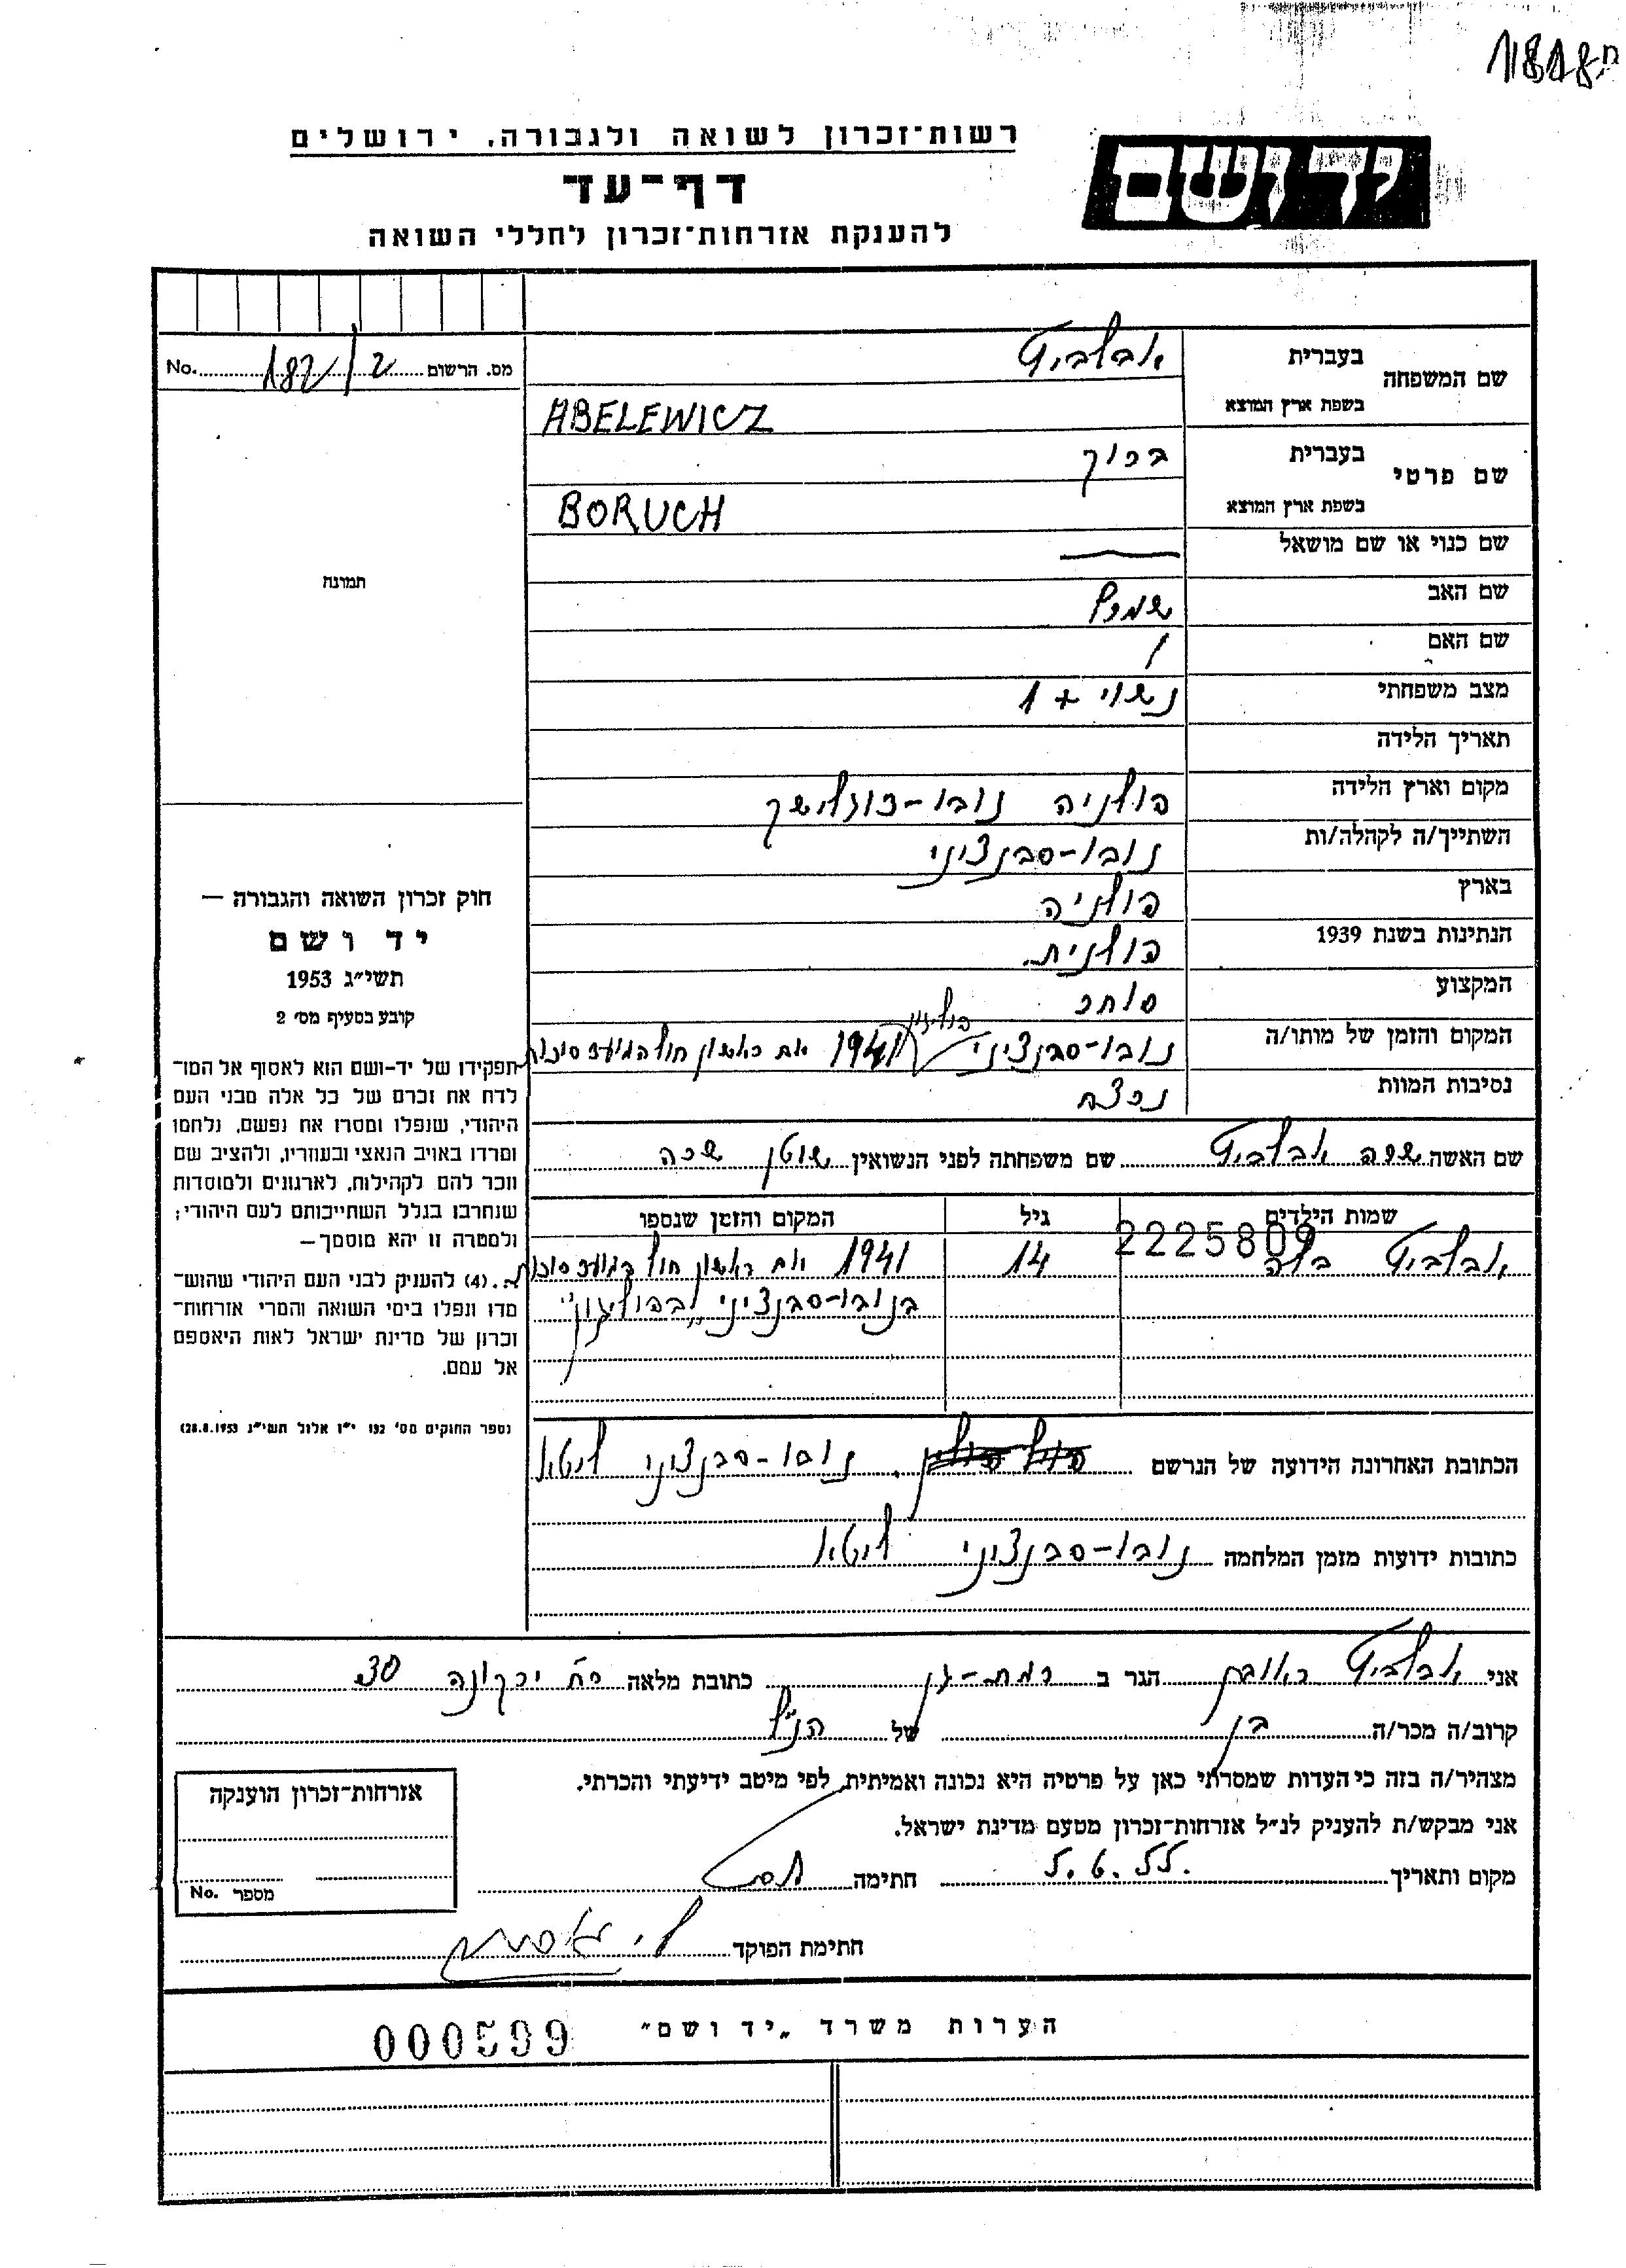 18188
רשות־זכרון לשואה ולגבורה, ירושלים
יד ושם
דף־עד
להענקת אזרחות־זכרון לחללי השואה
מס. הרשום 182/2 No.
שם המשפחה
בעברית אבלביץ
בשפת ארץ המוצא ABELEWICZ
שם פרטי
בעברית ברוך
בשפת ארץ המוצא BORUCH
שם כנוי או שם מושאל —
שם האב
שם האם /
מצב משפחתי נשוי + 1
תאריך הלידה
מקום וארץ הלידה פולניה נובו-
השתייך/ה לקהלה/ות נובו-סבנציני
בארץ פולניה
הנתינות בשנת 1939 פולנית.
המקצוע סוחר
המקום והזמן של מותו/ה נובו-סבנציני פוליגון 1941 יום ראשון חול המועד סוכות
נסיבות המוות נרצח
תמונה
חוק זכרון השואה והגבורה —
יד ושם
תשי״ג 1953
קובע בסעיף מס׳ 2
תפקידו של יד-ושם הוא לאסוף אל המו־
לדת את זכרם של כל אלה מבני העם
היהודי, שנפלו ומסרו את נפשם, נלחמו
ומרדו באויב הנאצי ובעוזריו, ולהציב שם
וזכר להם לקהילות, לארגונים ולמוסדות
שנחרבו בגלל השתייכותם לעם היהודי;
ולמטרה זו יהא מוסמך —
(4) להעניק לבני העם היהודי שהוש־
מדו ונפלו בימי השואה והמרי אזרחות־
זכרון של מדינת ישראל לאות היאספם
אל עמם.
(ספר החוקים מס׳ 132 י״ז אלול תשי״ג 28.8.1953)
שם האשה שרה אבלביץ שם משפחתה לפני הנשואין שוטן שרה
שמות הילדים גיל המקום והזמן שנספו
2225809
אבלביץ בלה 14 1941 יום ראשון חול המועד סוכות
בנובו-סבנציני „בפוליגון״
הכתובת האחרונה הידועה של הנרשם נובו-סבנציני ליטא
כתובות ידועות מזמן המלחמה נובו-סבנציני ליטא
אני אבלביץ ראובן הגר ב רמת-גן כתובת מלאה רח׳ ירקונה 30
קרוב/ה מכר/ה בן של הנ״ל
מצהיר/ה בזה כי העדות שמסרתי כאן על פרטיה היא נכונה ואמיתית, לפי מיטב ידיעתי והכרתי.
אני מבקש/ת להעניק לנ״ל אזרחות־זכרון מטעם מדינת ישראל.
מקום ותאריך 5.6.55 חתימה
חתימת הפוקד
אזרחות־זכרון הוענקה
מספר No.
הערות משרד „יד ושם״
000599